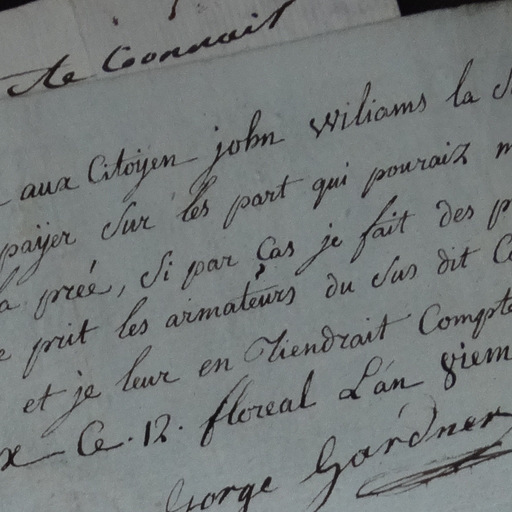 te Connait
aux Citoyen john Wiliams la
payer sur les part qui pouraiz
preé, Si par Cas je fait des
prit les armateurs du Sus dit
et je leur en Tiendrait Compte
Ce. 12. floreal L'an 8iem
George Gardner